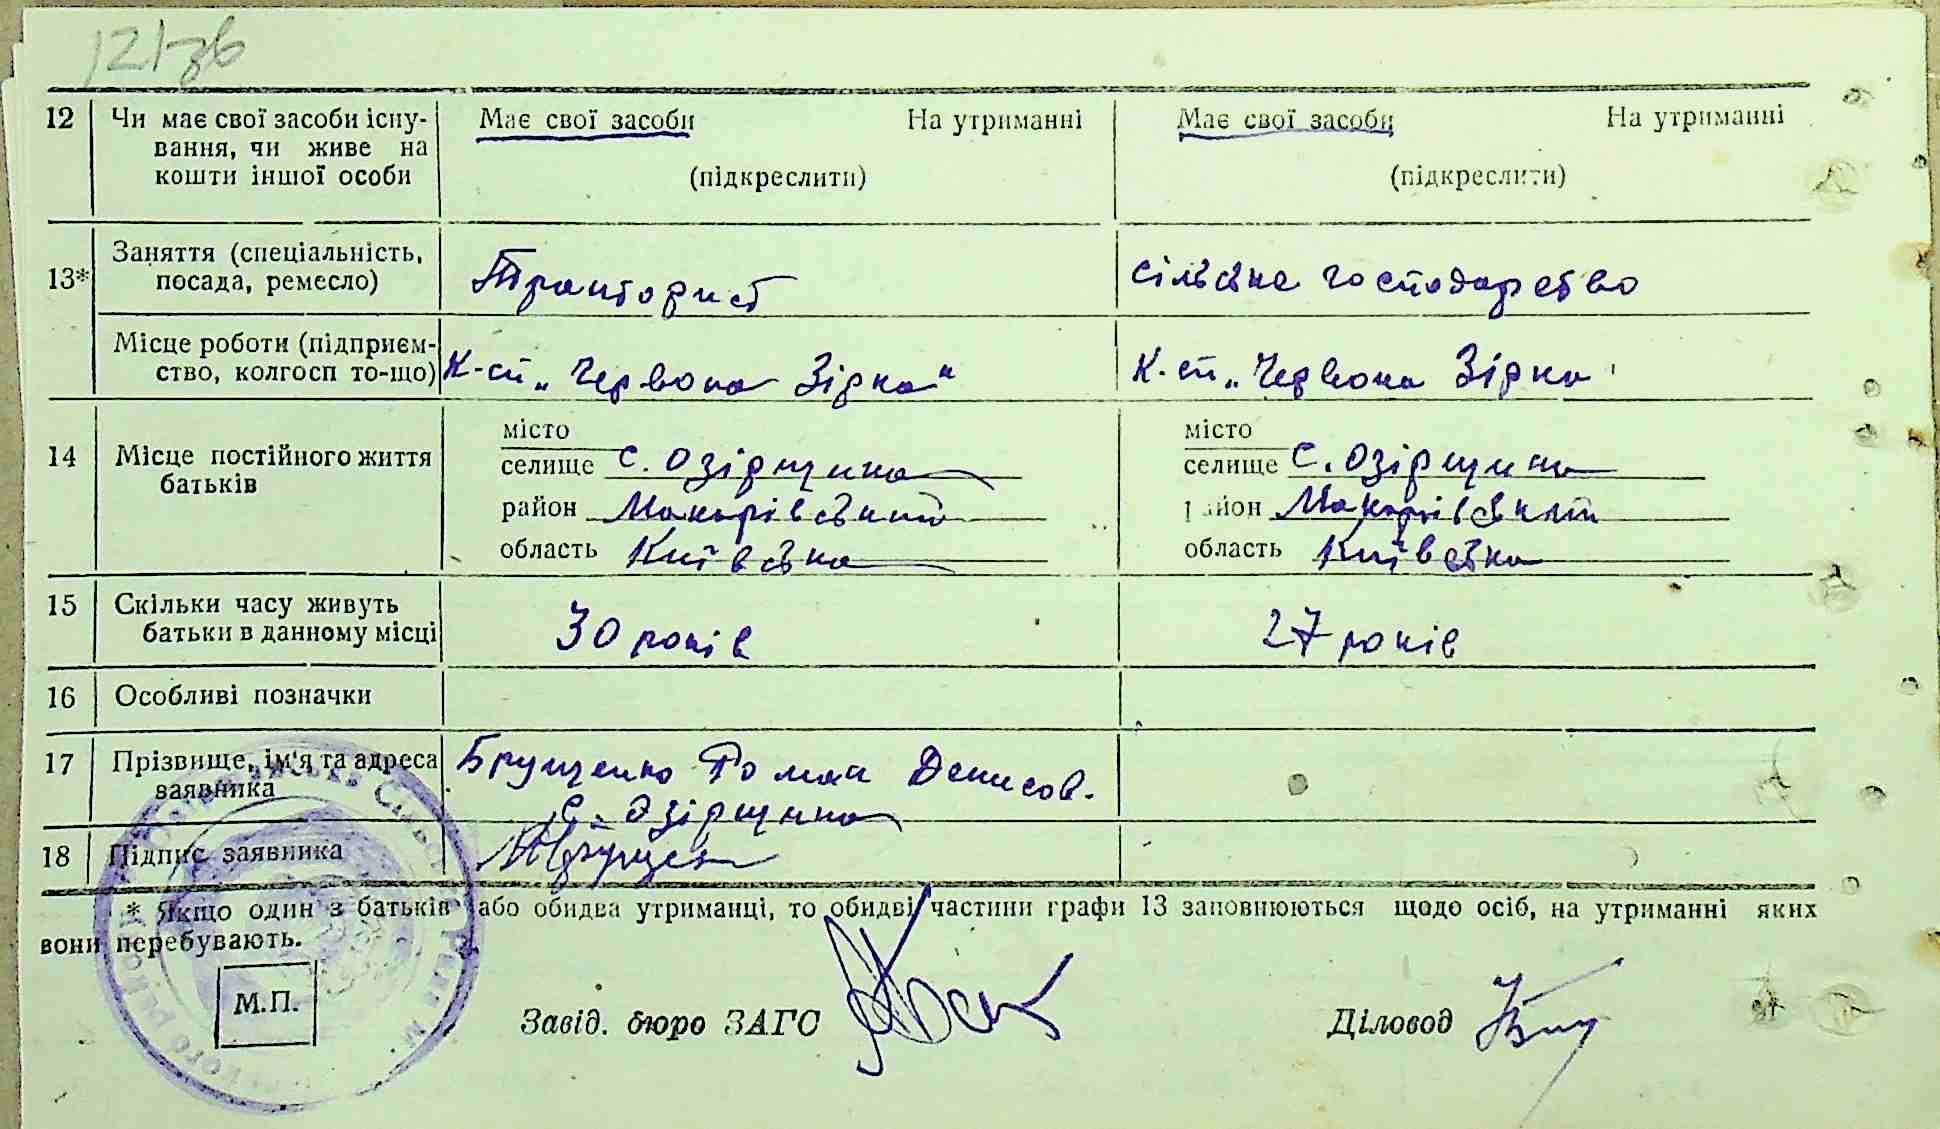 12 Чи має свої засоби існу- Має свої засоби На утриманні Має свої засоби На утриманні
вання, чи живе на
кошти іншої особи (підкреслити) (підкреслити)
13* Заняття (спеціальність,
посада, ремесло) Тракторист сільське господарство
Місце роботи (підприєм-
ство, колгосп то-що) К-сп „Червона Зірка" К-сп „Червона Зірка
місто місто
14 Місце постійного життя селище с. Озірщина селище с. Озірщина
батьків
район Макарівський район Макарівський
область Київська область Київська
15 Скільки часу живуть
батьки в данному місці 30 років 27 років
16 Особливі позначки
17 Прізвище, ім'я та адреса Брущенко Роман Денисов.
заявника с. Озірщина
18 Підпис заявника
* Якщо один з батьків або обидва утриманці, то обидві частини графи 13 заповнюються щодо осіб, на утриманні яких
вони перебувають.
М.П.
Завід. бюро ЗАГС Діловод